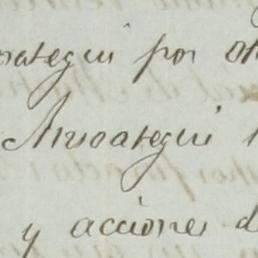 rategui por ot
Anroategui
y acciones d